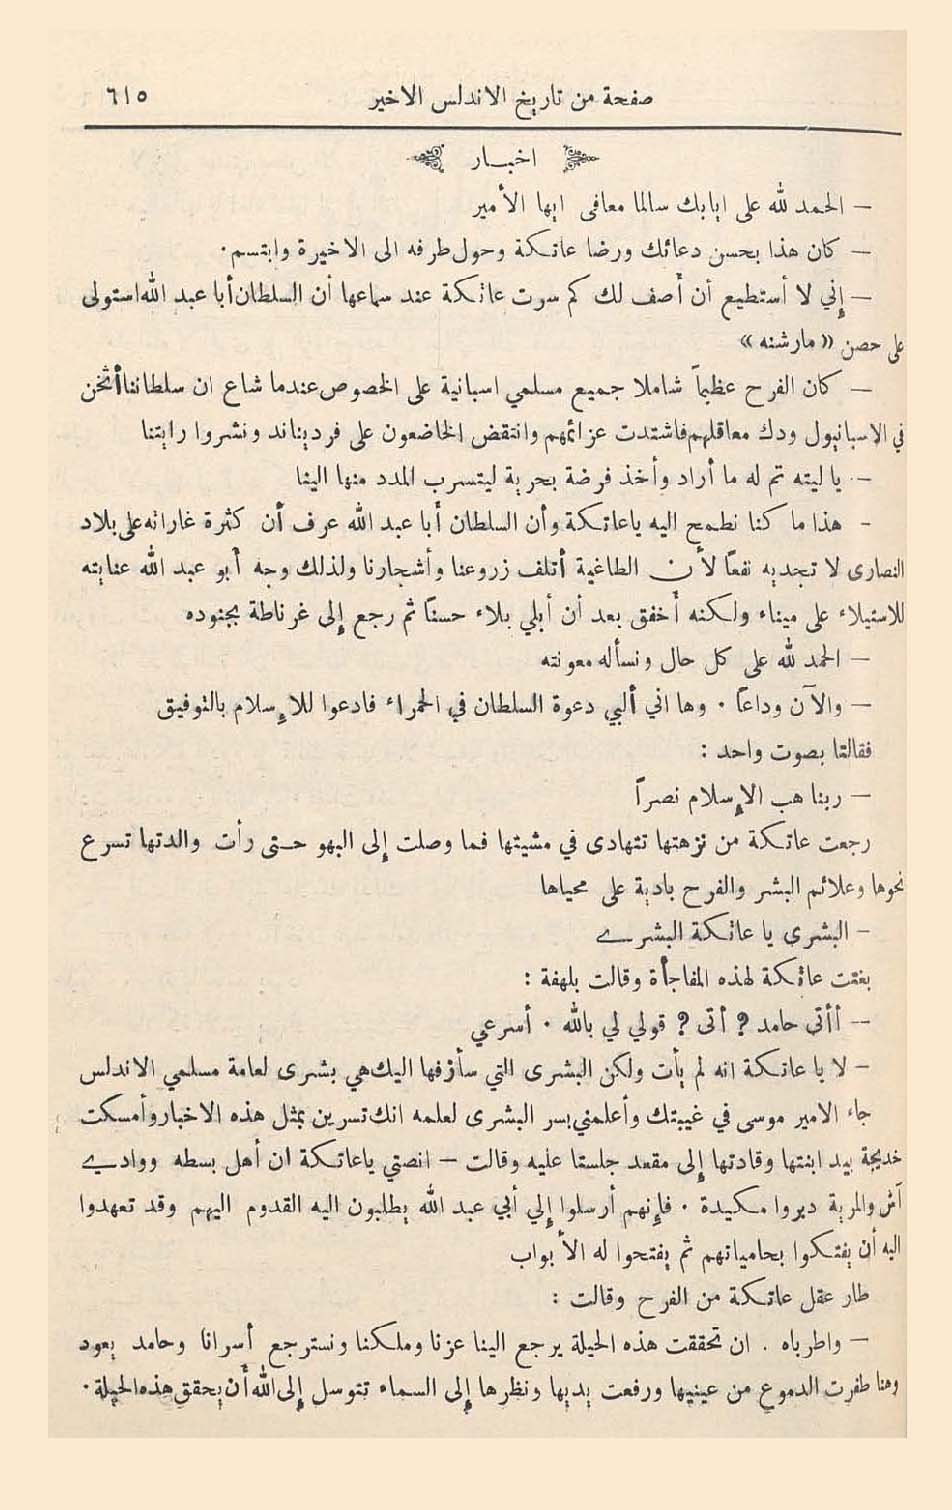 صفحة من تاريخ الاندلس الاخير ٦١٥
اخبـار
— الحمد لله على ايابك سالما معافى ايها الأمير
— كان هذا بحسن دعائك ورضا عاتكة وحول طرفه الى الاخيرة وابتسم.
— إني لا أستطيع أن أصف لك كم سرت عاتكة عند سماعها أن السلطان أبا عبد الله استولى
على حصن «مارشنه»
— كان الفرح عظيماً شاملا جميع مسلمي اسبانية على الخصوص عندما شاع ان سلطاننا أثخن
في الاسبانيول ودك معاقلهم فاشتدت عزائمهم وانتقض الخاضعون على فرديناند ونشروا رايتنا
— يا ليته تم له ما أراد وأخذ فرضة بحرية ليتسرب المدد منها الينا
— هذا ما كنا نطمح اليه يا عاتكة وأن السلطان أبا عبد الله عرف أن كثرة غاراته على بلاد
النصارى لا تجديه نفعاً لأن الطاغية أتلف زروعنا وأشجارنا ولذلك وجه أبو عبد الله عنايته
للاستيلاء على ميناء ولكنه أخفق بعد أن أبلي بلاء حسناً ثم رجع إلى غرناطة بجنوده
— الحمد لله على كل حال ونسأله معونته
— والآن وداعاً. وها اني ألبي دعوة السلطان في الحمراء فادعوا للإسلام بالتوفيق
فقالتا بصوت واحد:
— ربنا هب الإسلام نصراً
رجعت عاتكة من نزهتها تتهادى في مشيتها فما وصلت إلى البهو حتى رأت والدتها تسرع
نحوها وعلائم البشر والفرح بادية على محياها
— البشرى يا عاتكة البشرى
بغتت عاتكة لهذه المفاجأة وقالت بلهفة:
— أأتى حامد؟ أتى؟ قولي لي بالله. أسرعي
— لا يا عاتكة انه لم يأت ولكن البشرى التي سأزفها اليك هي بشرى لعامة مسلمي الاندلس
جاء الامير موسى في غيبتك وأعلمني بسر البشرى لعلمه انك تسرين بمثل هذه الاخبار وأمسكت
خديجة بيد ابنتها وقادتها إلى مقعد جلستا عليه وقالت — انصتي يا عاتكة ان أهل بسطه ووادي
آش والمرية دبروا مكيدة. فإنهم أرسلوا إلي أبي عبد الله يطلبون اليه القدوم اليهم وقد تعهدوا
اليه أن يفتكوا بحامياتهم ثم يفتحوا له الأبواب
طار عقل عاتكة من الفرح وقالت:
— واطرباه. ان تحققت هذه الحيلة يرجع الينا عزنا وملكنا ونسترجع أسرانا وحامد يعود
وهنا طفرت الدموع من عينيها ورفعت يديها ونظرها إلى السماء تتوسل إلى الله أن يحقق هذه الحيلة.